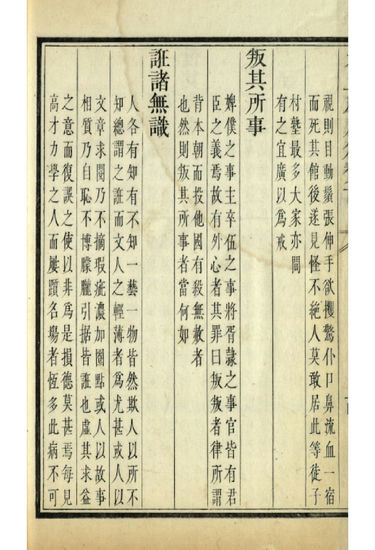 視則目動鬚張伸手欲攫驚仆口鼻流血一宿
而死其館後遂見怪不絕人莫敢居此等徒子
村塾最多大家亦間
有之宜廣以為戒
叛其所事
婢僕之事主卒伍之事將胥隸之事官皆有君
臣之義焉故有外心者其罪曰叛叛者律所謂
背本朝而投他國有殺無赦者
也然則叛其所事者當何如
誑諸無識
人各有知有不知一藝一物皆然欺人以所不
知總謂之誑而文人之輕薄者為尤甚或人以
文章求閱乃不摘瑕疵濃加圈點或人以故事
相質乃自恥不博朦朧引據皆誑也虛其求益
之意而復誤之使以非為是損德莫甚焉每見
高才力學之人而屢躓名場者恆多此病不可